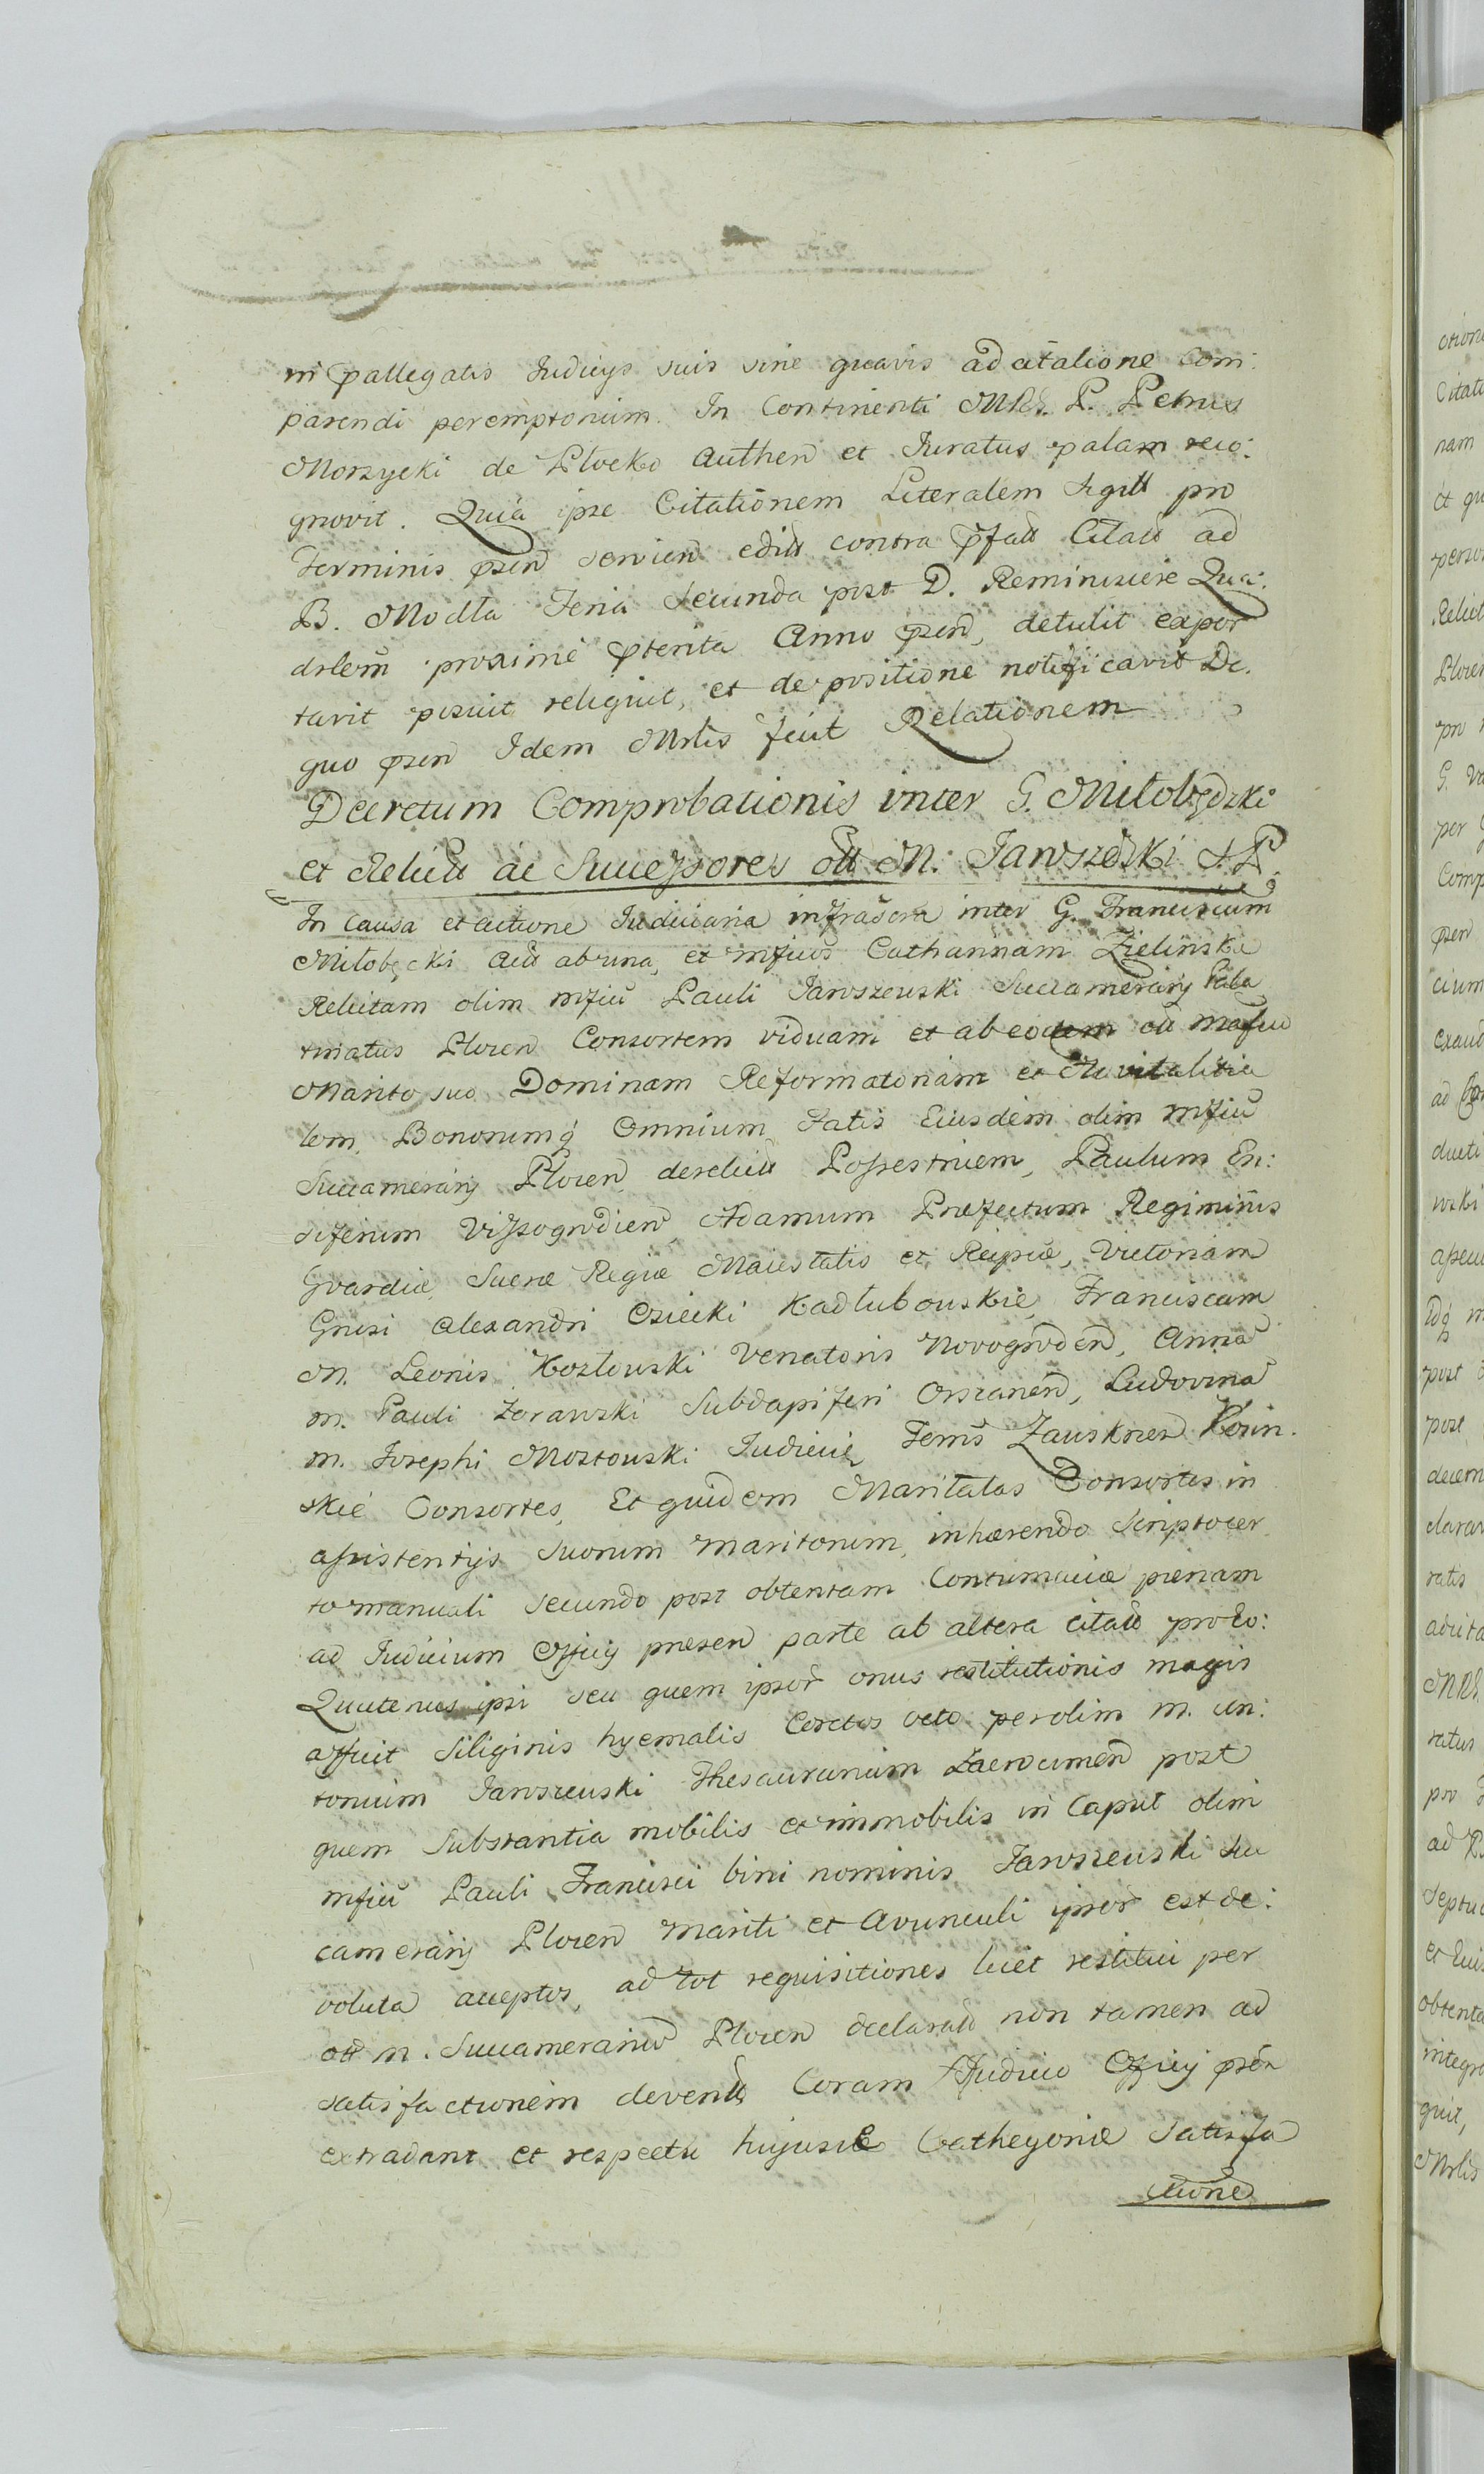 in pallegatis Judicys suis sine quavis adcitatione Com:
parendi peremptorium. In Continenti MRS. P. Petrus
Morzycki de Plocko Authen et Juratus palam reco:
gnovit. Quia ipse Citationem Literalem Sigill pro
Terminis psen servien edit contra pfatt Citatt ad
B. Modła Feria Secunda post D. Reminiscere Qua:
drlem proxime pterita Anno psen, detulit expor
tavit posuit reliquit, et depositione notificavit De
quo psen Idem Mrlis fecit Relationem
Decretum Comprobationis inter G. Miłobędzki
et Relictt ac Successores ott M. Jaroszewski S. P.
In Causa et actione Judiciaria infrascra inter G. Franciscum
Miłobęcki Actt ab una, et mfius Catharinam Zielinska
Relictam olim mficū Pauli Jaroszewski Succamerary Pala
tinatus Plocen Consortem viduam et ab eodem ott mafico
Marito suo Dominam Reformatoriam et Advitalitia
lem, Bonorumq Omnium Fatis Eiusdem olim mfici
Succamerary Plocen derelictt Possestricem, Paulum En:
siferum Vissogrodien Adamum Præfectum Regiminis
Gvardiæ Sacræ Regiæ Maiestatis et Reipcæ, Victoriam
Gnosi Alexandri Osiecki Kadłubowskie, Franciscam
M. Leonis Kozłowski Venatoris Novogroden, Anna
M. Pauli Zorawski Subdapiferi Orszanen, Ludovina
M. Josephi Mostowski Judicis Terris Zauskrzen
skie Consortes, Et quidem Maritatas Consortes in
assistentys Suorum Maritorum, inhærendo Scripto cer
to manuali Secundo post obtentam Contumaciæ pænam
ad Judicium Officy presen parte ab altera citatt pro Eo:
Quatenus ipsi seu quem ipsor onus restitutionis magis
afficit Siliginis hyemalis Coretos octo per olim M. An:
tonium Jaroszewski Thesaurarium Zacrocimen post
quem Substantia mobilis et immobilis in Caput olim
mficū Pauli Francisci bini nominis Jaroszewski Suc
camerary Plocen Mariti et Avunculi ipsor est de:
voluta acceptos, ad tot requisitiones licet restitui per
ott M. Succamerariū Plocen declaratt non tamen ad
satisfactionem deventt Coram Judicio Officy psen
extradant et respectu hujusce Cathegoriæ Satisfa
ctione